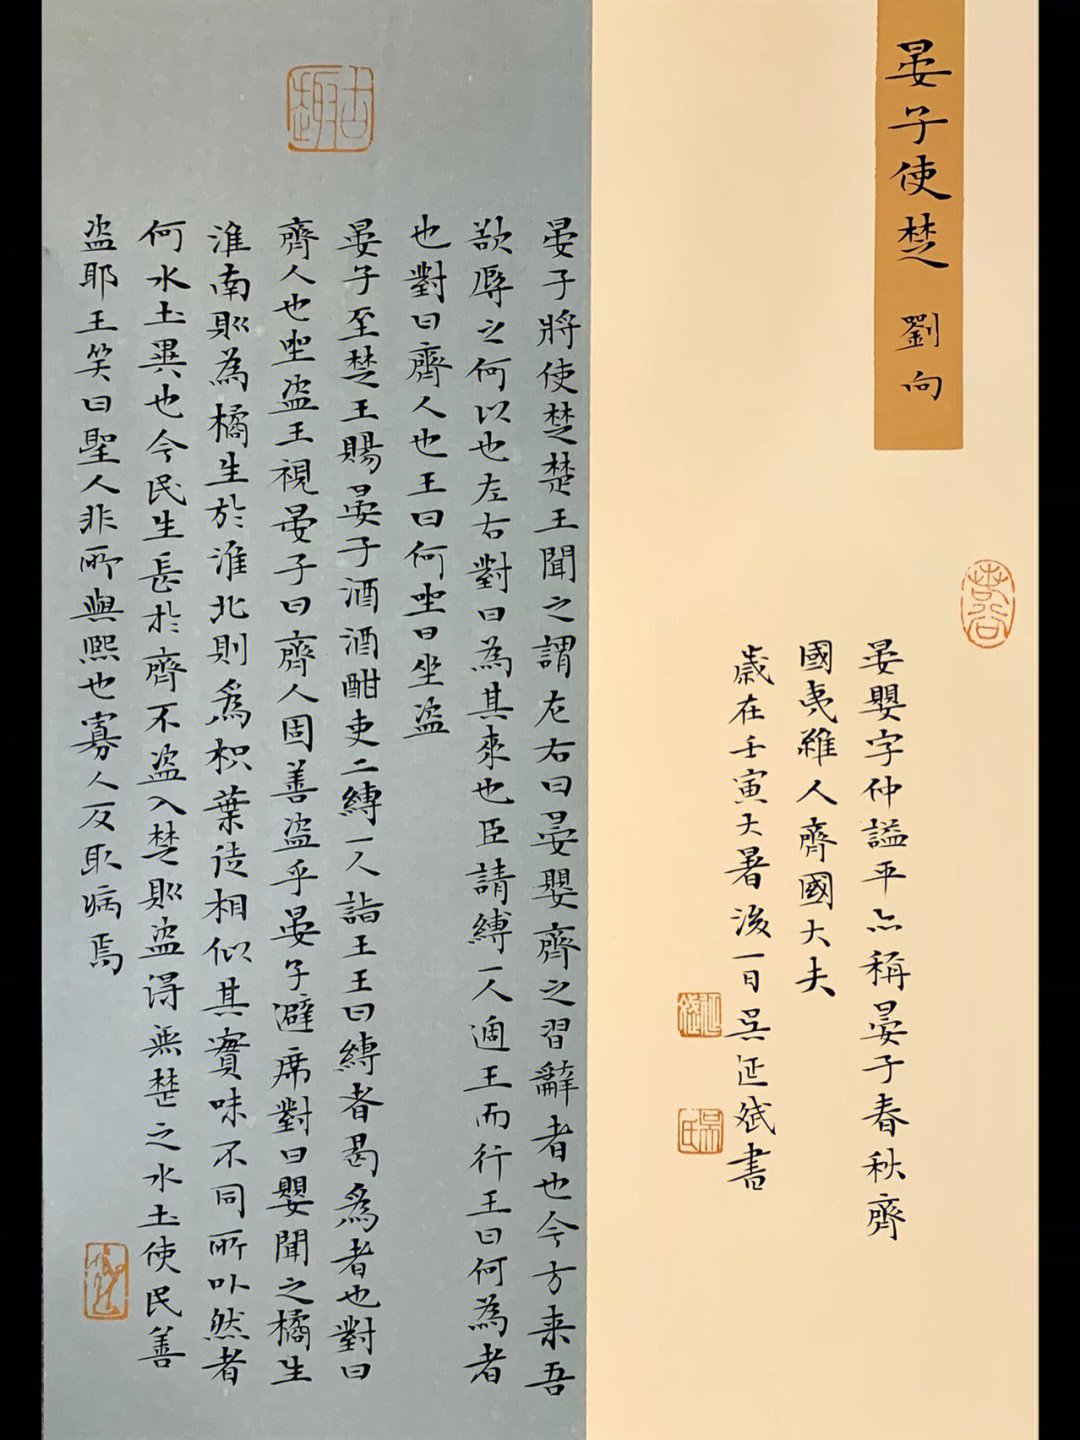 晏子使楚 劉向
晏嬰字仲謚平亦稱晏子春秋齊
國夷維人齊國大夫
歲在壬寅大暑後一日吳延斌書
吳氏
古趣
晏子將使楚楚王聞之謂左右曰晏嬰齊之習辭者也今方来吾
欲辱之何以也左右對曰為其來也臣請縛一人過王而行王曰何為者
也對曰齊人也王曰何坐曰坐盗
晏子至楚王賜晏子酒酒酣吏二縛一人詣王王曰縛者曷為者也對曰
齊人也坐盗王視晏子曰齊人固善盗乎晏子避席對曰嬰聞之橘生
淮南則為橘生於淮北則為枳葉徒相似其實味不同所以然者
何水土異也今民生長於齊不盗入楚則盗得無楚之水土使民善
盗耶王笑曰聖人非所與熙也寡人反取病焉